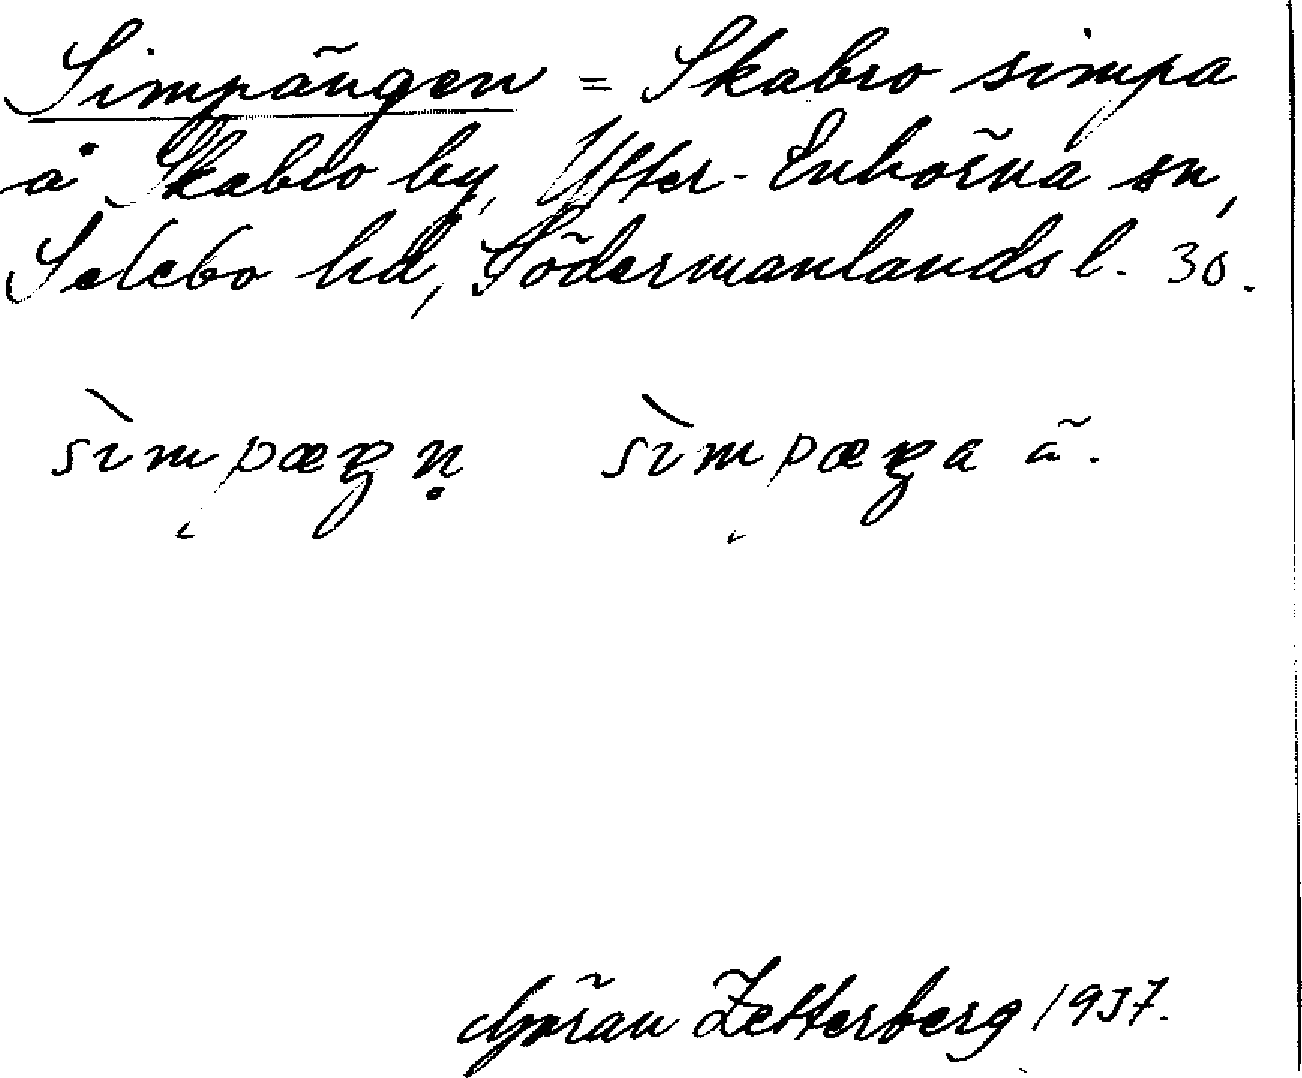 Simpängen = Skabro simpa
å Skabro by, Ytter-Enhörna sn,
Selebo hd, Södermanlands l. 30.
Göran Zetterberg 1937.